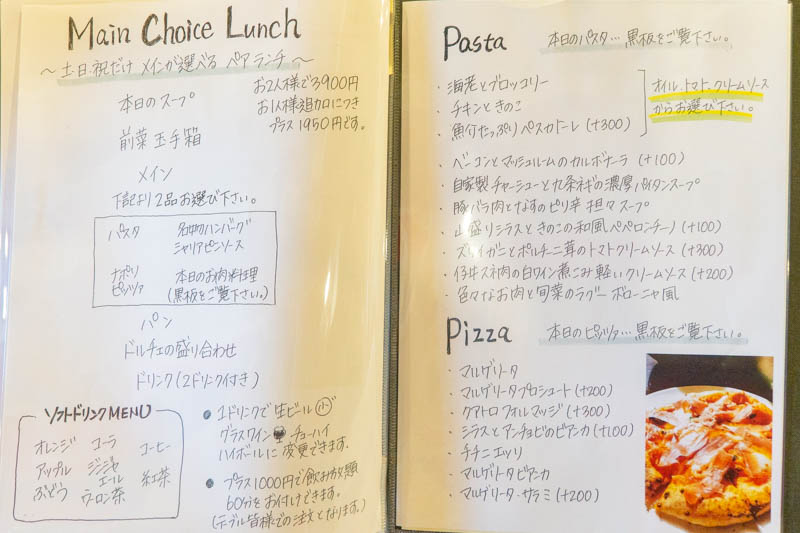 Main Choice Lunch
～土・日・祝だけ メインが選べる ペアランチ～
お2人様で3900円
お1人様追加につき
プラス1950円です。
本日のスープ
前菜 玉手箱
メイン
下記より2品お選び下さい。
パスタ
名物ハンバーグ
シャリアピンソース
ナポリ
ピッツァ
本日のお肉料理
(黒板をご覧下さい。)
パン
ドルチェの盛り合わせ
ドリンク(2ドリンク付き)
ソフトドリンクMENU
オレンジ コーラ コーヒー
アップル ジンジャ
エール 紅茶
ぶどう ウーロン茶
● 1ドリンクで生ビール(小)
グラスワイン チューハイ
ハイボールに変更できます。
● プラス1000円で飲み放題
60分をお付けできます。
(テーブル皆様での注文となります。)
Pasta 本日のパスタ…黒板をご覧下さい。
・海老とブロッコリー
・チキンときのこ
・魚介たっぷりペスカトーレ (+300)
オイル、トマト、クリームソース
からお選び下さい。
・ベーコンとマッシュルームのカルボナーラ (+100)
・自家製チャーシューと九条ネギの濃厚パイタンスープ
・豚バラ肉となすのピリ辛 担々スープ
・山盛りシラスときのこの和風ペペロンチーノ (+100)
・ズワイガニとポルチーニ茸のトマトクリームソース (+300)
・仔牛スネ肉の白ワイン煮こみ 軽いクリームソース (+200)
・色々なお肉と旬菜のラグー ボローニャ風
Pizza 本日のピッツァ…黒板をご覧下さい。
・マルゲリータ
・マルゲリータプロシュート (+200)
・クアトロフォルマッジ (+300)
・シラスとアンチョビのビアンカ (+100)
・チチニエッリ
・マルゲリータビアンカ
・マルゲリータ・サラミ (+200)